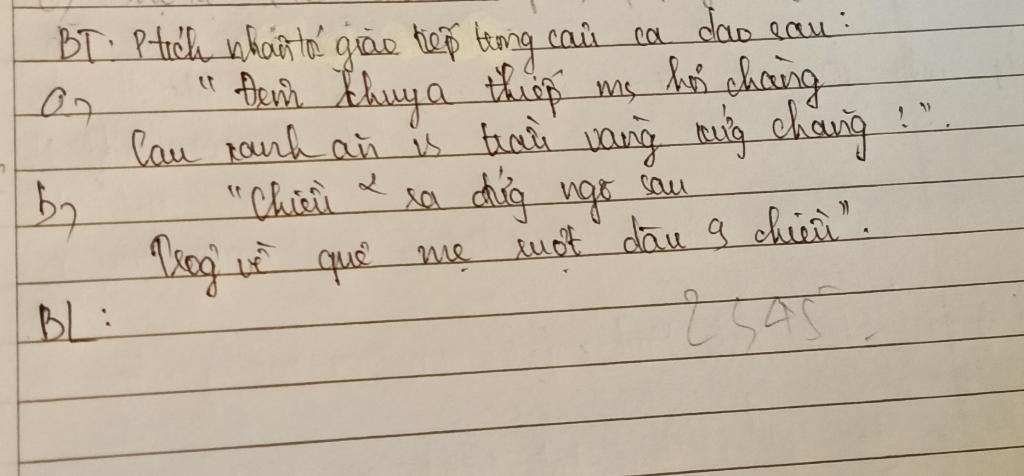 BT: Ptích nhân tố giao tiếp trong câu ca dao sau:
a, "Đêm khuya thiếp ms hỏi chàng
Cau xanh ăn vs trầu vàng xứg chăng?".
b, "Chiều 2 ra đứg ngõ sau
Trôg về quê mẹ ruột đau 9 chiều".
BL:
2345